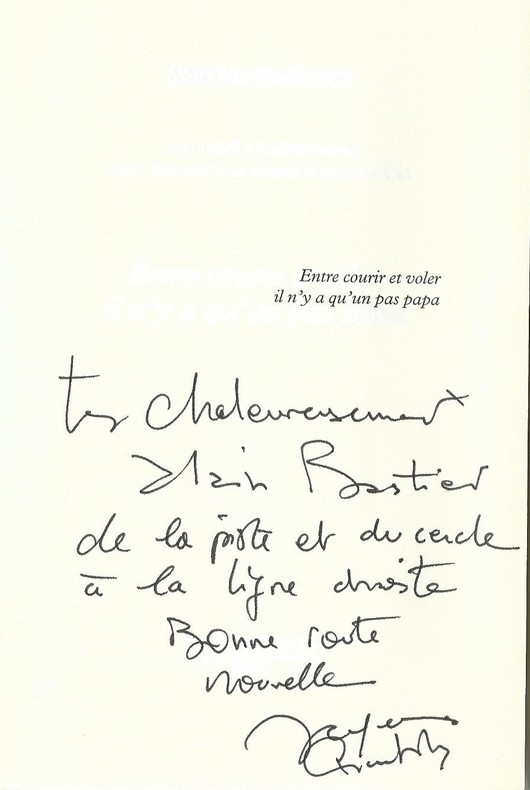 Entre courir et voler
il n'y a qu'un pas papa
très chaleureusement
Alain Bastier
de la piste et du cercle
à la ligne droite
Bonne route
nouvelle